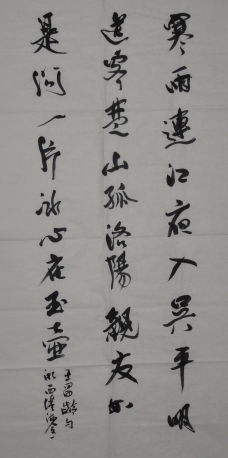 寒雨連江夜入吳平明
送客楚山孤洛陽親友如
是問一片冰心在玉壺
王昌齡句